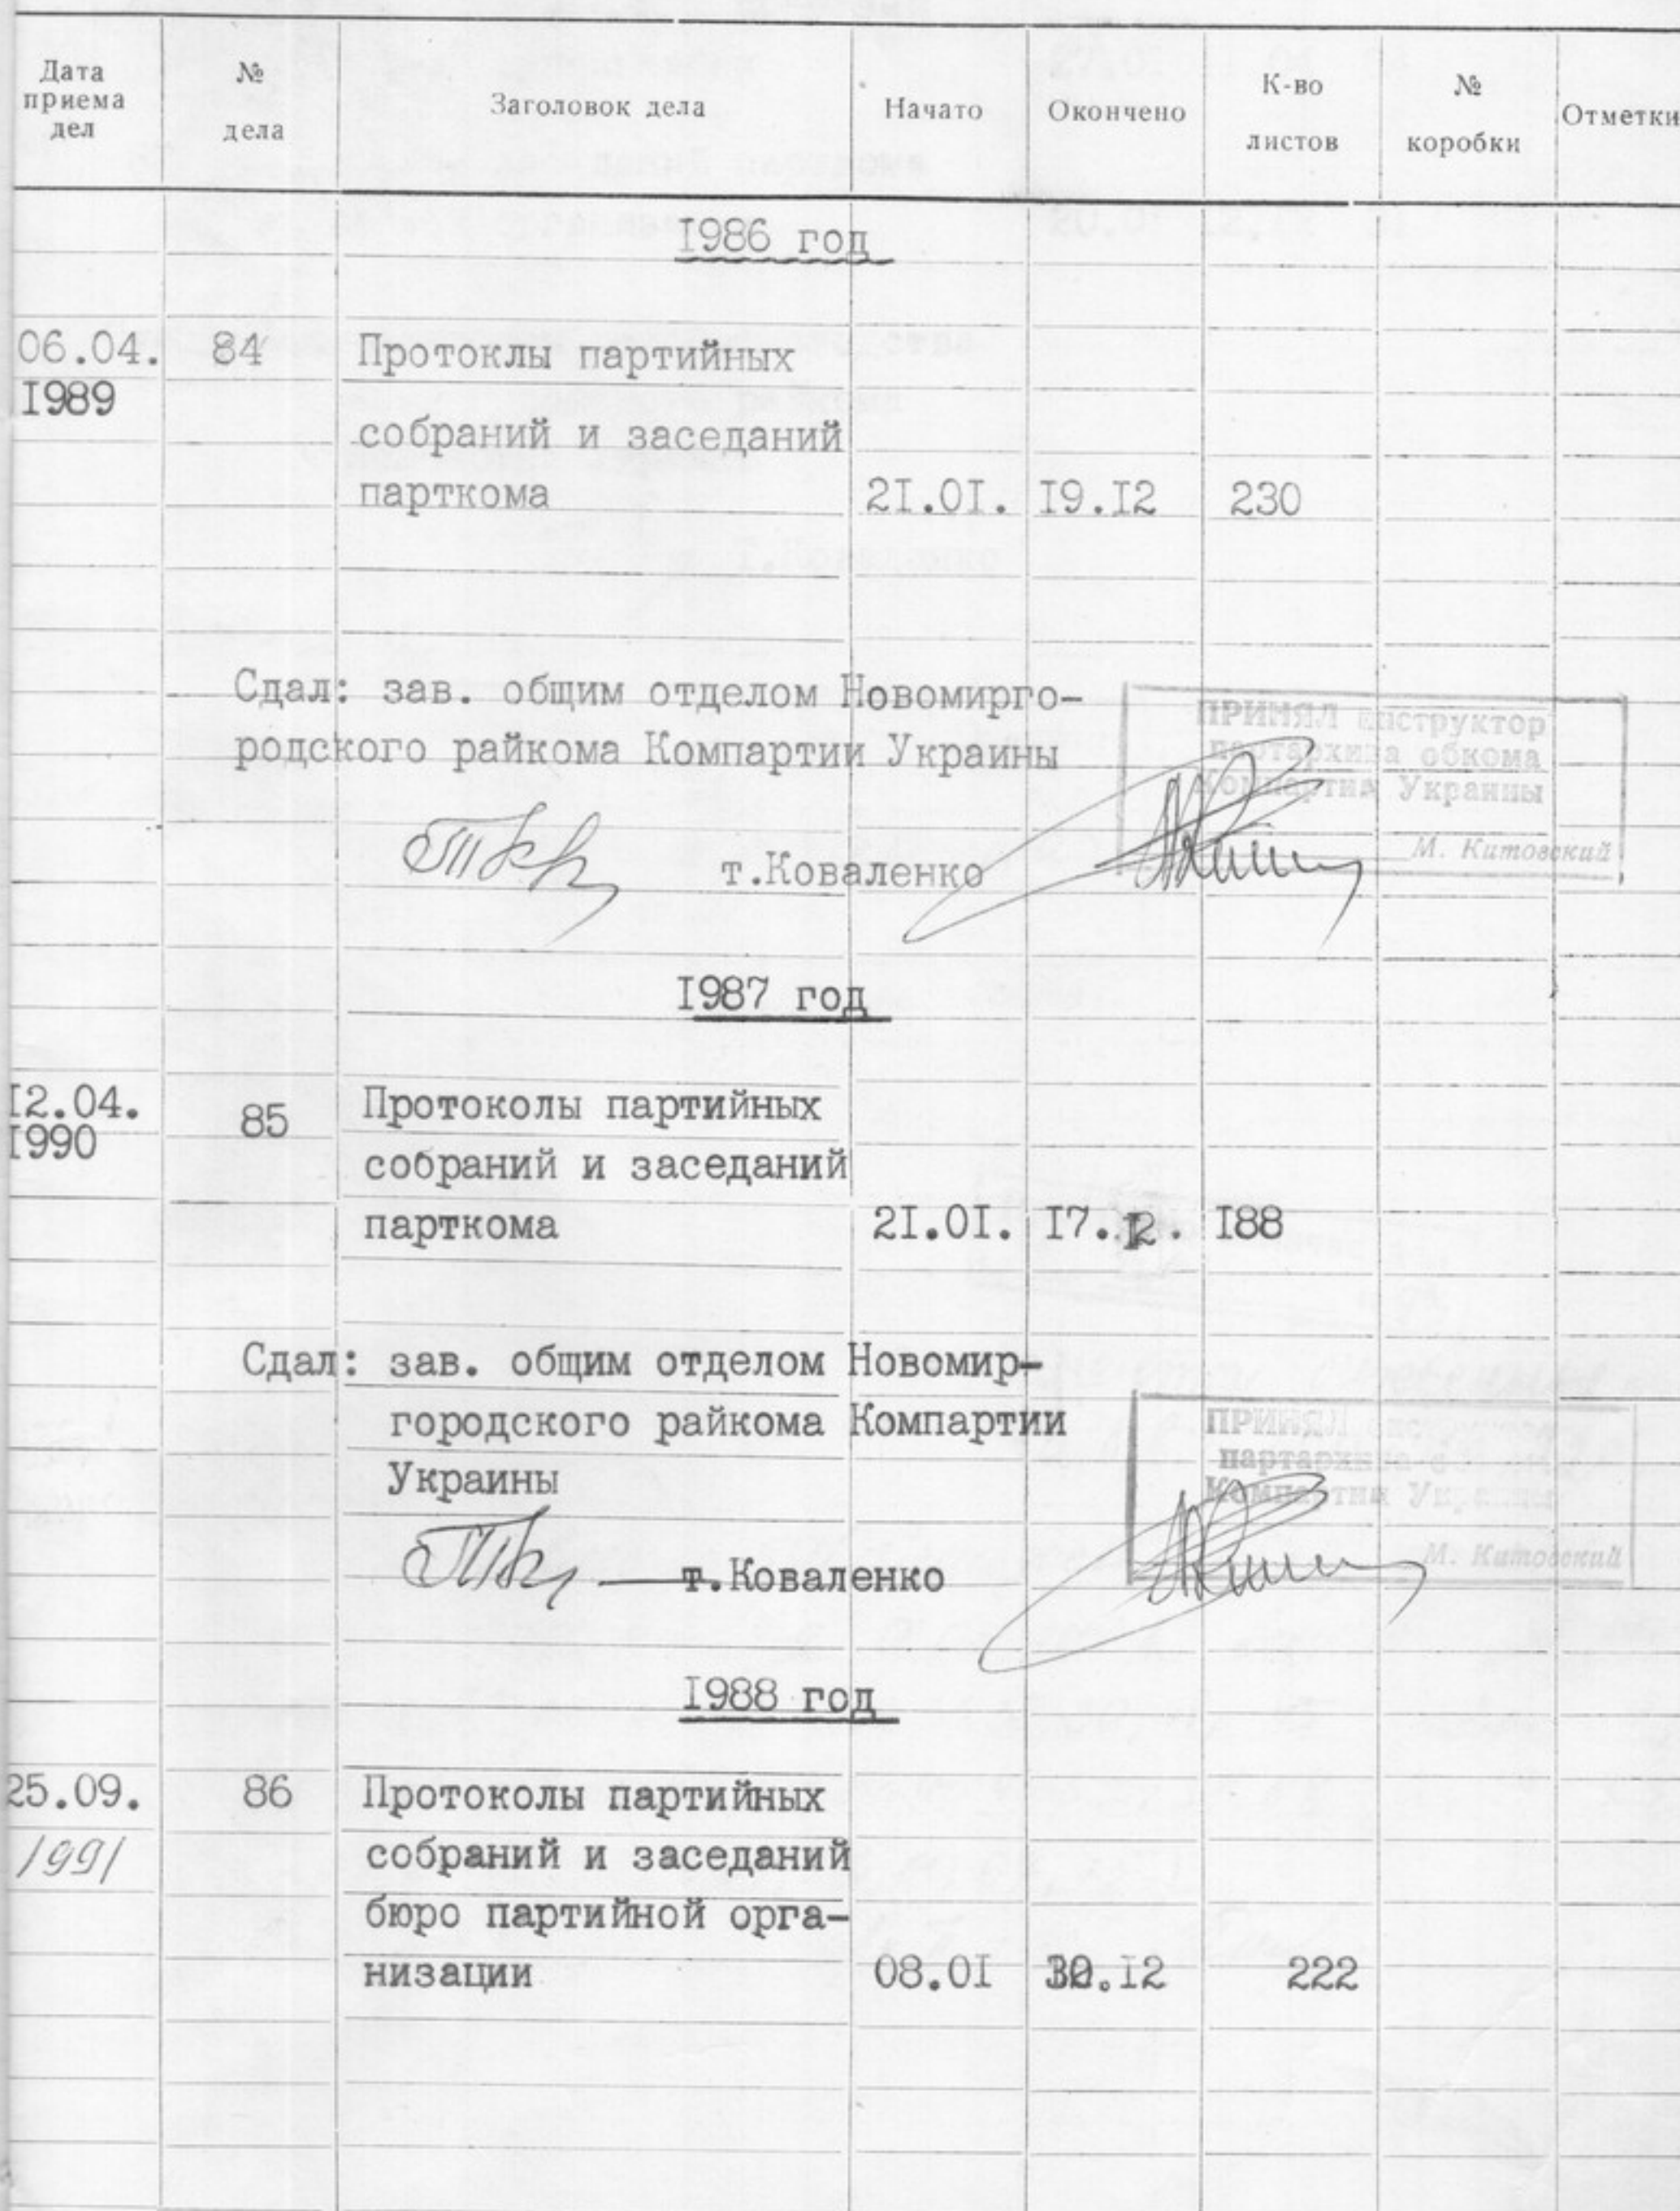 Дата приема дел № дела Заголовок дела Начато Окончено К-во листов № коробки Отметки
1986 год
06.04. 84 Протоклы партийных
1989
собраний и заседаний
парткома 21.01. 19.12 230
Сдал: зав. общим отделом Новомирго-
родского райкома Компартии Украины
ПРИНЯЛ инструктор
партархива обкома
Компартии Украины
М. Китовский
т.Коваленко
1987 год
12.04. 85 Протоколы партийных
1990
собраний и заседаний
парткома 21.01. 17.12. 188
Сдал: зав. общим отделом Новомир-
городского райкома Компартии
Украины
ПРИНЯЛ
партархива
Компартии Украины
М. Китовский
т.Коваленко
1988 год
25.09. 86 Протоколы партийных
1991 собраний и заседаний
бюро партийной орга-
низации 08.01 .12 222